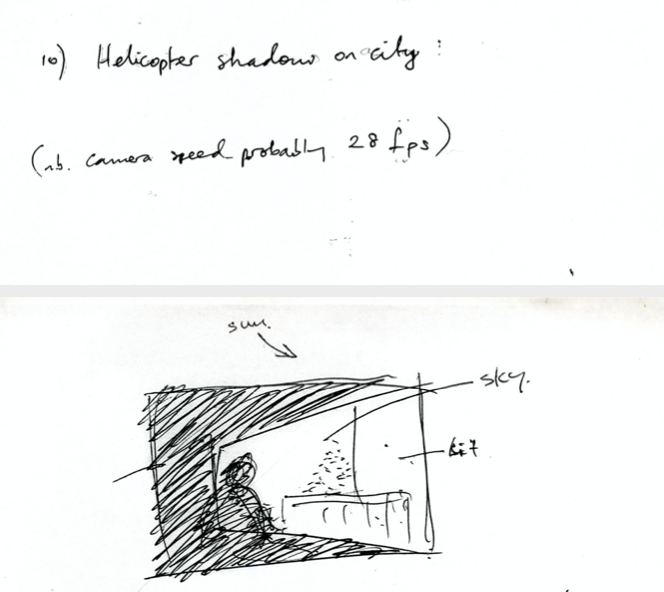 10) Helicopter shadow on city :
(nb. camera speed probably 28 fps)
sun.
sky.
lit